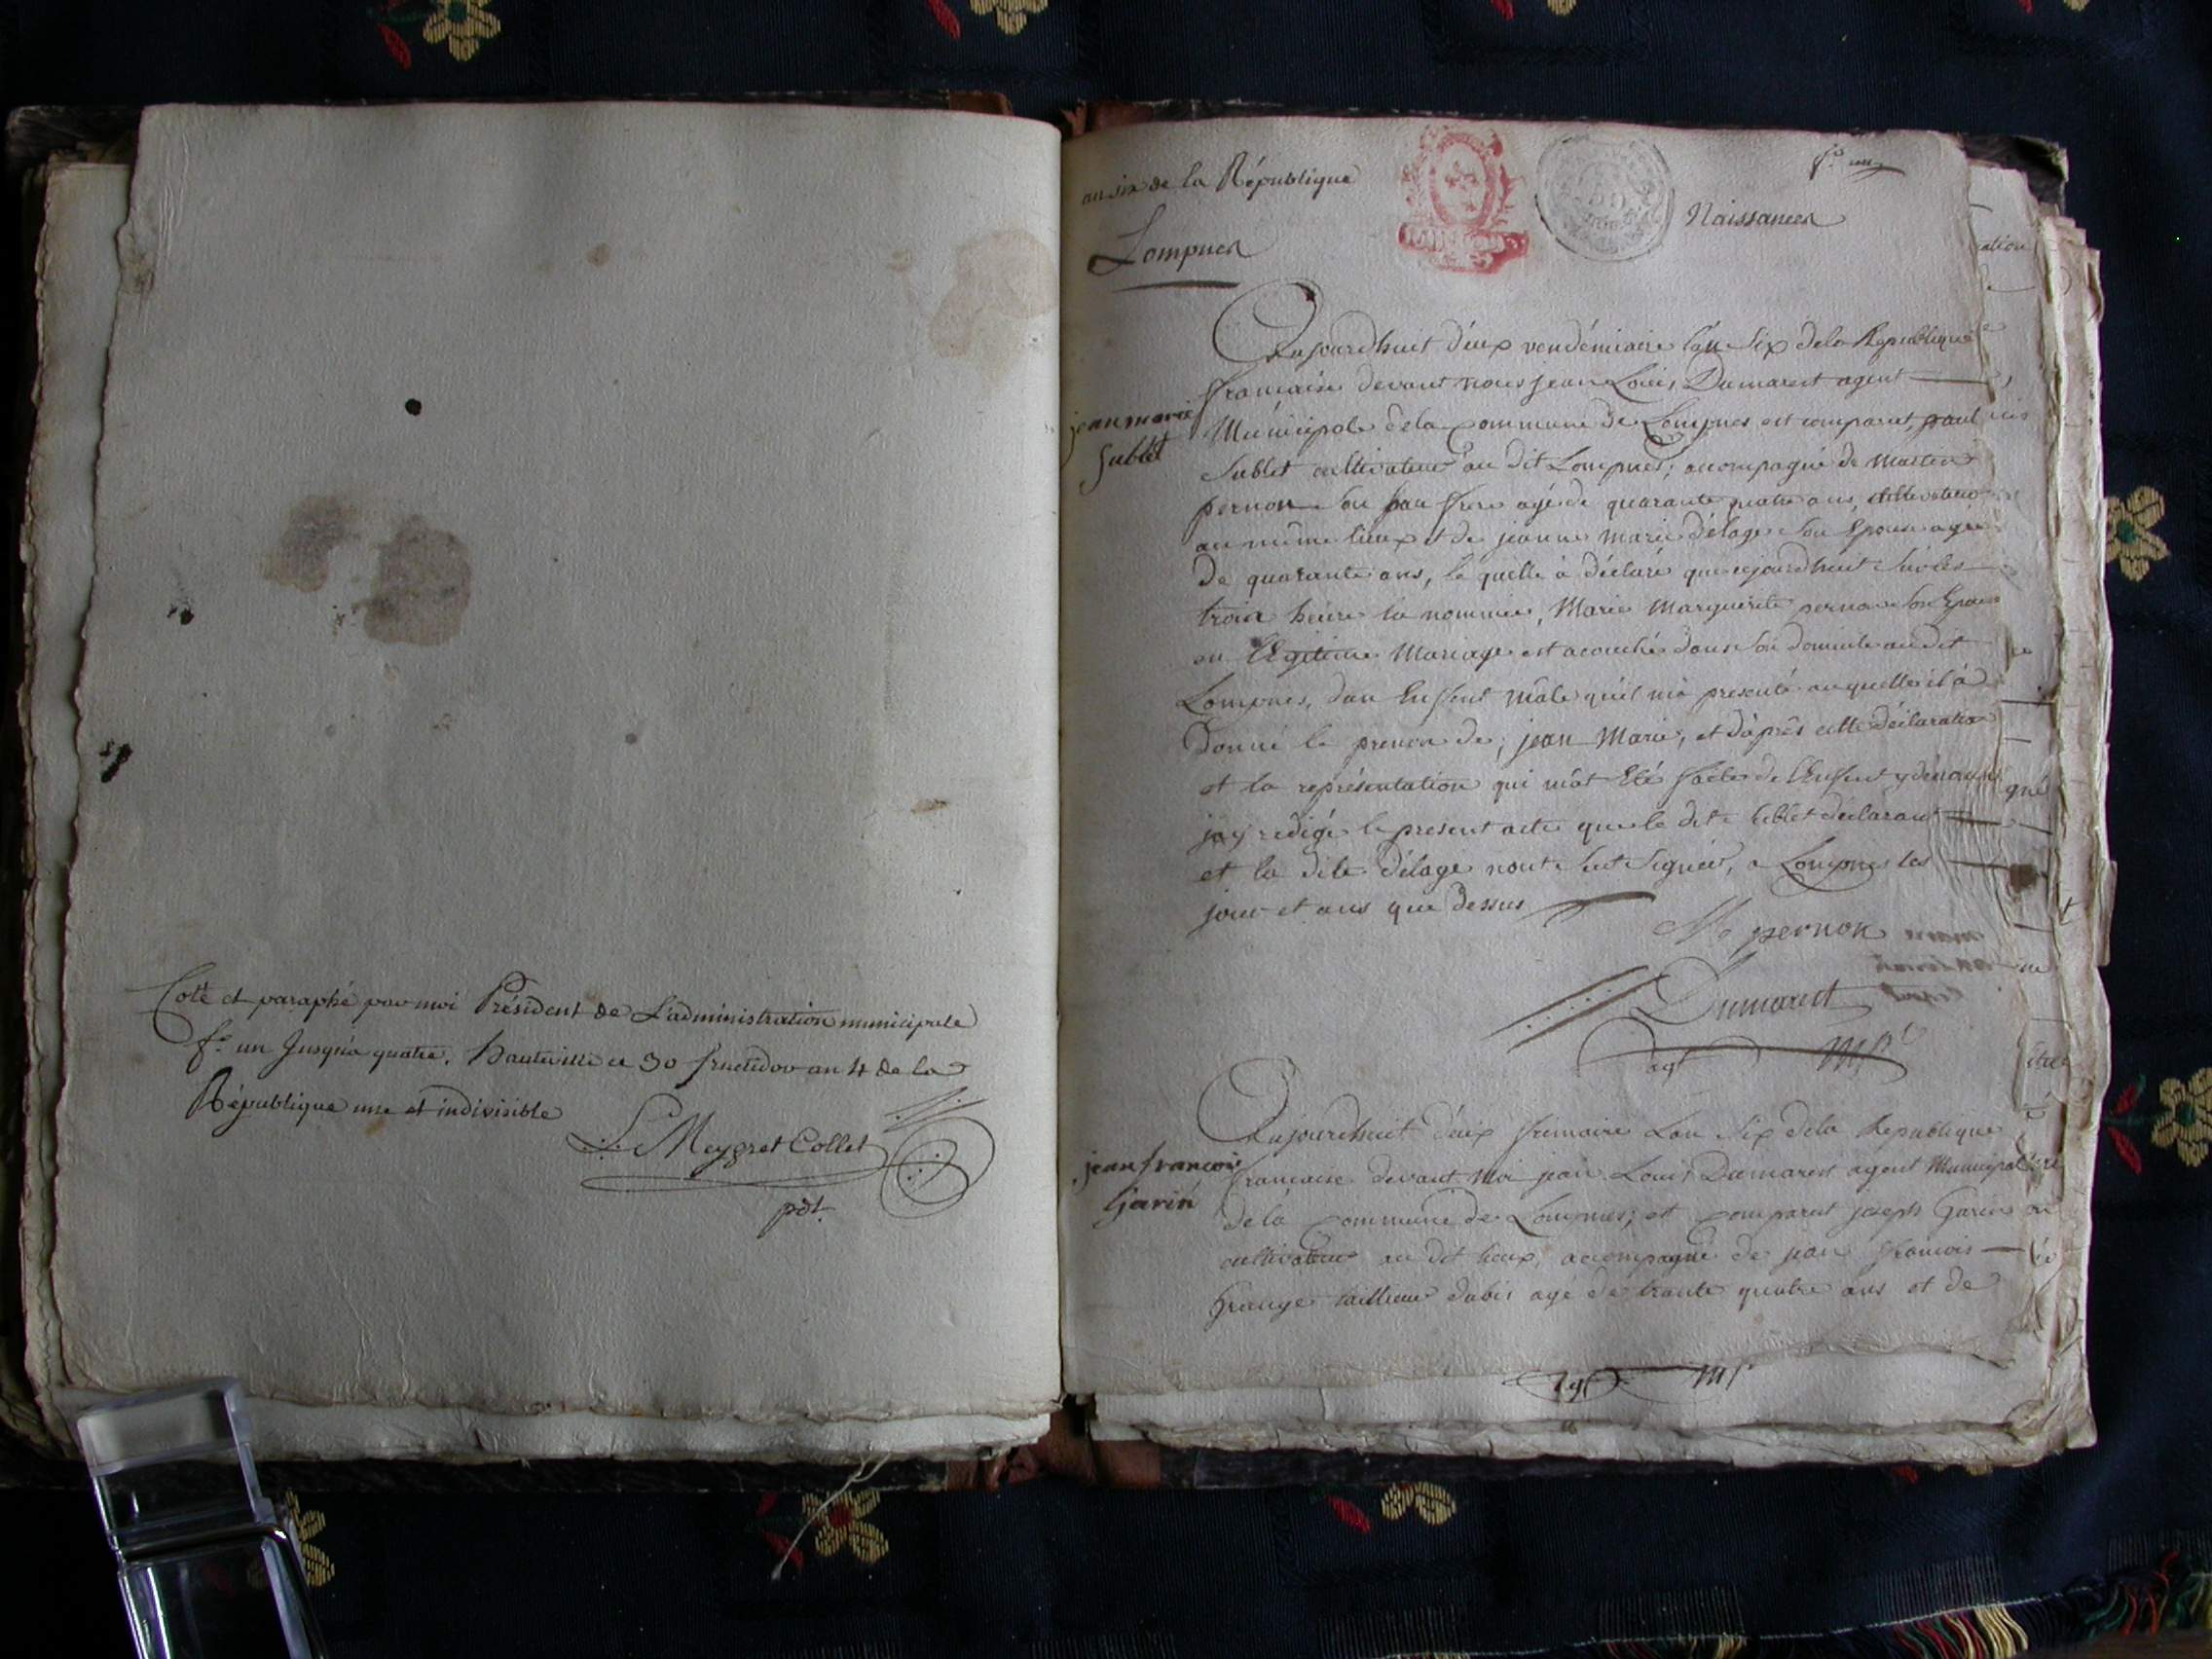 Coté et paraphé par moi Président de L'administration municipale
f.º un Jusqu'a quatre. hauteville ce 30 fructidor an 4 de la
République une et indivisible
L. Meygret Collet
pdt.
an six de la République
Naissances
Lompnes
jean marie
Sublet
Aujourdhuit deux vendémiaire l'an Six de la Republique
francaise devant nous jean Louis Dumarest agent
Municipale dela Commune de Lompnes est comparut, paul
Sublet cultivateur au dit Lompnes; acompagné de Martin
pernon son bau frere agé de quarante quatre ans, cultivateur
au même lieux et de jeanne marie délage son Epouse agée
De quarante ans, le quelle à déclaré que ajourdhuit sur les
trois heure la nommée, Marie Marguerite pernon son Epouse
en lEgitime Mariage est acouchée dans son domicile au dit
Lompnes, dun Enfent mâle quil mà presenté auquelle il à
Donné le prenon de, jean Marie, et dàprês cette déclaration
et la représentation qui màt Eté faite de l'Enfent y dénommé
jay redigé le present acte que le dit Sublet déclarant
et la dite délage nont sut signée, a Lompnes les
jour et ans que dessus
M pernon
Dumarest
agt mpl
jean francois
Garin
Aujourdhuit deux frimaire Lan Six dela Republique
francaise devant moi jean Louis Dumarest agent Municipal
dela Commune de Lompnes; est comparut joseph Garin
cultivateur au dit lieux, acompagné de jean francois
Grange tallieur dabis agé de trante quatre ans et de